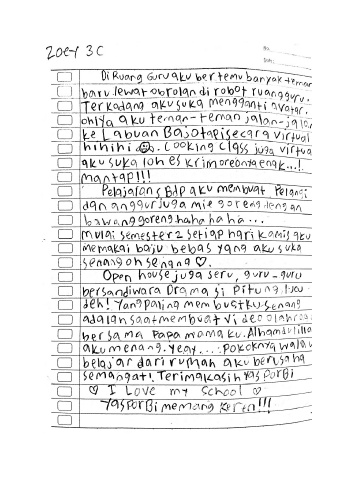 Zoey 3C
No.
Date:
Di Ruang Guru aku bertemu banyak teman
baru lewat obrolan di robot ruangguru.
Terkadang aku suka mengganti avatar.
ohiya aku teman-teman jalan-jalan
ke Labuan Bajo tapi secara virtual
hihihi Cooking class juga virtual
aku suka loh es krim oreonya enak...!
mantap!!!
Pelajaran BdP aku membuat Pelangi
dan anggur juga mie goreng dengan
bawang goreng hahaha...
mulai semester 2 setiap hari kamis aku
memakai baju bebas yang aku suka
senang oh senang ♡.
Open house juga seru, guru-guru
bersandiwara Drama si Pitung, lucu
deh! Yang paling membuatku senang
adalah saat membuat video olahraga
bersama Papa mamaku. Alhamdulilla
aku menang. Yeay....: Pokoknya walau
belajar dari rumah aku berusaha
semangat! Terimakasih Yasporbi
♡ I Love my school ♡
Yasporbi memang keren!!!